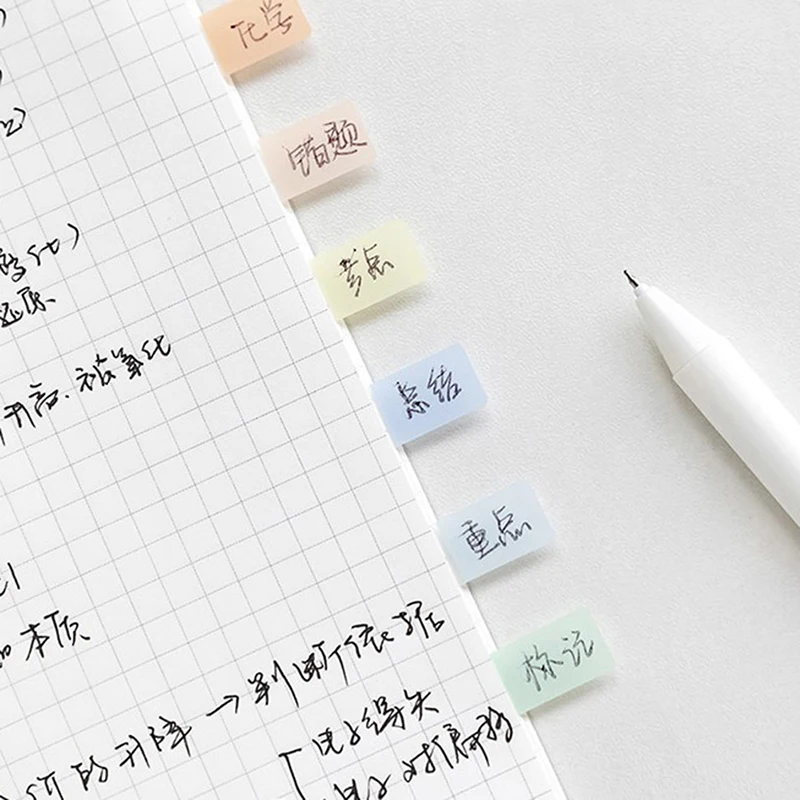 化学
错题
考点
总结
重点
标记
还原
升高.被氧化
本质
价的升降→判断依据
电子得失
电子对偏移